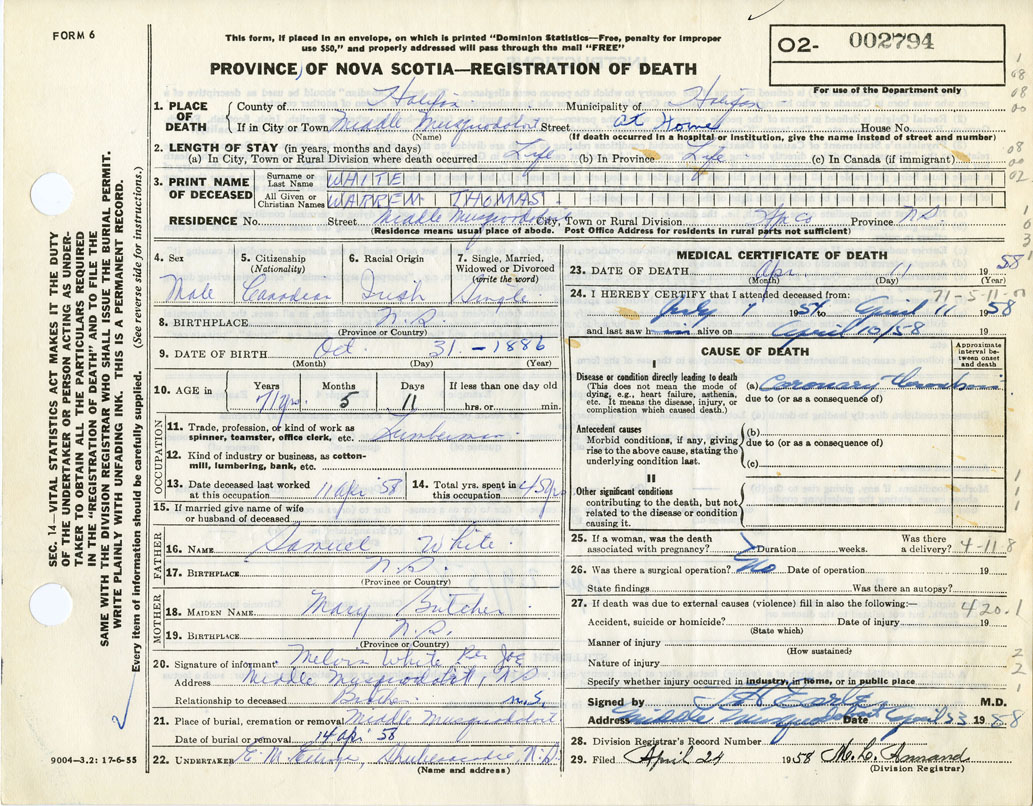 FORM 6
This form, if placed in an envelope, on which is printed "Dominion Statistics—Free, penalty for improper
use $50," and properly addressed will pass through the mail "FREE"
PROVINCE OF NOVA SCOTIA—REGISTRATION OF DEATH
O2- 002794
For use of the Department only
1. PLACE OF DEATH
County of Halifax Municipality of Halifax
If in City or Town Middle Musquodoboit Street At Home House No.
(Name) (If death occurred in a hospital or institution, give the name instead of street and number)
2. LENGTH OF STAY (in years, months and days)
(a) In City, Town or Rural Division where death occurred Life (b) In Province Life (c) In Canada (if immigrant)
3. PRINT NAME OF DECEASED
Surname or Last Name WHITE
All Given or Christian Names WARREN THOMAS
RESIDENCE No. Street Middle Musquodoboit City, Town or Rural Division Hfx Co Province N.S.
(Residence means usual place of abode. Post Office Address for residents in rural parts not sufficient)
SEC. 14—VITAL STATISTICS ACT MAKES IT THE DUTY
OF THE UNDERTAKER OR PERSON ACTING AS UNDER-
TAKER TO OBTAIN ALL THE PARTICULARS REQUIRED
IN THE "REGISTRATION OF DEATH" AND TO FILE THE
SAME WITH THE DIVISION REGISTRAR WHO SHALL ISSUE THE BURIAL PERMIT.
WRITE PLAINLY WITH UNFADING INK. THIS IS A PERMANENT RECORD.
Every item of information should be carefully supplied. (See reverse side for instructions.)
4. Sex Male
5. Citizenship (Nationality) Canadian
6. Racial Origin Irish
7. Single, Married, Widowed or Divorced (write the word) Single
8. BIRTHPLACE N.S.
(Province or Country)
9. DATE OF BIRTH Oct. 31 - 1886
(Month) (Day) (Year)
10. AGE in Years 71 yrs Months 5 Days 11 If less than one day old
hrs. or min.
OCCUPATION
11. Trade, profession, or kind of work as
spinner, teamster, office clerk, etc. Lumberman
12. Kind of industry or business, as cotton-
mill, lumbering, bank, etc.
13. Date deceased last worked
at this occupation 11 Apr 58
14. Total yrs. spent in
this occupation 45 yrs
15. If married give name of wife
or husband of deceased
FATHER
16. NAME Samuel White
17. BIRTHPLACE N.S.
(Province or Country)
MOTHER
18. MAIDEN NAME Mary Butcher
19. BIRTHPLACE N.S.
(Province or Country)
20. Signature of informant Melvin White Per
Address Middle Musquodoboit, N.S.
Relationship to deceased Brother N.S.
21. Place of burial, cremation or removal Middle Musquodoboit
Date of burial or removal 14 Apr 58
22. UNDERTAKER E. M. Shubenacadie, N.S.
(Name and address)
9004—3.2: 17-6-55
MEDICAL CERTIFICATE OF DEATH
23. DATE OF DEATH Apr 11 1958
(Month) (Day) (Year)
71-5-11
24. I HEREBY CERTIFY that I attended deceased from:
July 1 195 to April 11 1958
and last saw him alive on April 10/58 19
CAUSE OF DEATH
Approximate interval between onset and death
I
Disease or condition directly leading to death
(This does not mean the mode of
dying, e.g., heart failure, asthenia,
etc. It means the disease, injury, or
complication which caused death.)
(a) Coronary Thrombosis
due to (or as a consequence of)
Antecedent causes
Morbid conditions, if any, giving
rise to the above cause, stating the
underlying condition last.
(b)
due to (or as a consequence of)
(c)
II
Other significant conditions
contributing to the death, but not
related to the disease or condition
causing it.
25. If a woman, was the death
associated with pregnancy? Duration weeks. Was there
a delivery? 4-11-8
26. Was there a surgical operation? No Date of operation 19
State findings Was there an autopsy?
27. If death was due to external causes (violence) fill in also the following:— 420.1
Accident, suicide or homicide? Date of injury 19
(State which)
Manner of injury
(How sustained)
Nature of injury
Specify whether injury occurred in industry, in home, or in public place
Signed by M.D.
Address Middle Musquodoboit Date April 23 1958
28. Division Registrar's Record Number
29. Filed April 24 1958
(Division Registrar)